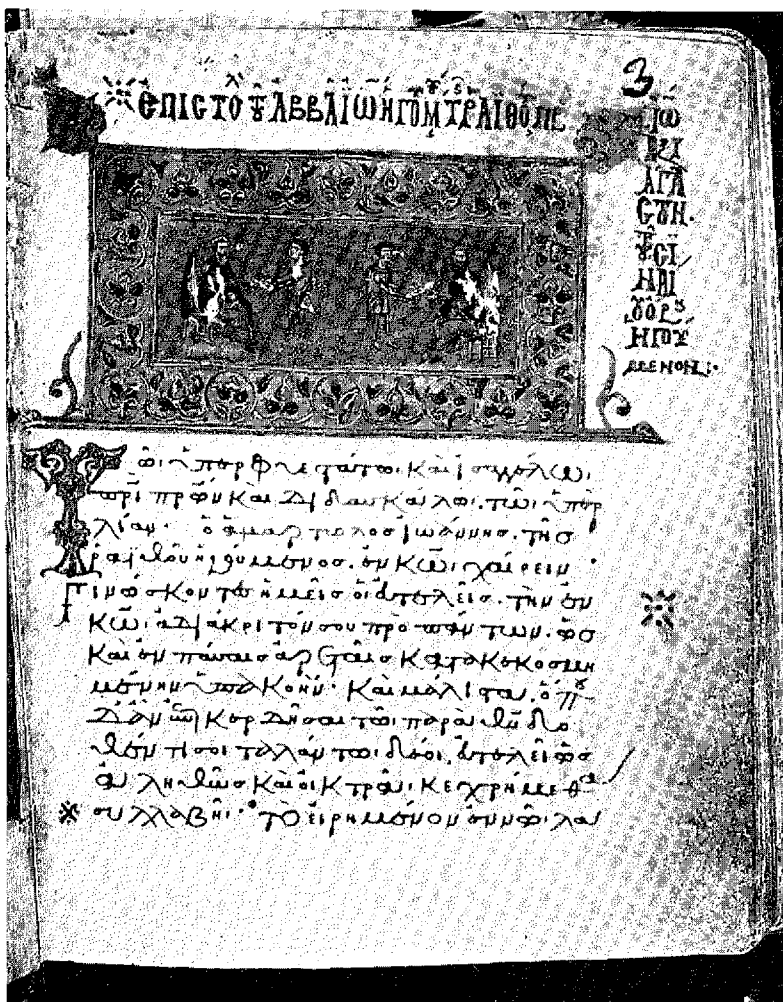 3
ἘΠΙΣΤΟΛ ΤΟΥ ἈΒΒΑ ἸΩ ἩΓΟΜ Τ ΡΑΙΘΟΥ ΠΡ
ἸΩ
ἉΓΙ
ΣΙ
ΝΑΙ
ΟΡΟΥ
ΗΓΟΥ
ΜΕΝΟΝ:·
Τῶι ὑπερφυεστάτωι καὶ ἰσαγγέλωι
πρὶ πρων καὶ διδασκάλωι τῶι ὑπερ
λίαν· ὁ ἁμαρτωλὸς ἰωάννης. τῆς
ραϊθοῦ ἡγούμενος. ἐν κωι χαίρειν·
Γινώσκοντες ἡμεῖς οἱ εὐτελεῖς. τὴν ἐν
κωι ἀδιάκριτόν σου πρὸ πάντων. ὡς
καὶ ἐν πάσαις ἀρεταῖς κατακεκοσμη
μένην ὑπακοήν· καὶ μάλιστα
κερδῆσαι τῶ παρὰ θυ δο
θέντι σοι ταλάντωι εὐτελεῖ ὡς
ἀληθῶς καὶ οἰκτρᾶι κεχρήμεθα
συλλαβῆι· τὸ εἰρημένον